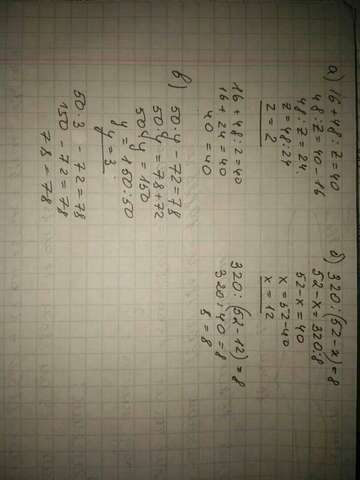 а) 16 + 48 : z = 40
48 : z = 40 - 16
48 : z = 24
z = 48 : 24
z = 2
16 + 48 : 2 = 40
16 + 24 = 40
40 = 40
б) 320 : (52 - x) = 8
52 - x = 320 : 8
52 - x = 40
x = 52 - 40
x = 12
320 : (52 - 12) = 8
320 : 40 = 8
8 = 8
в) 50 · y - 72 = 78
50 y = 78 + 72
50 y = 150
y = 150 : 50
y = 3
50 · 3 - 72 = 78
150 - 72 = 78
78 = 78